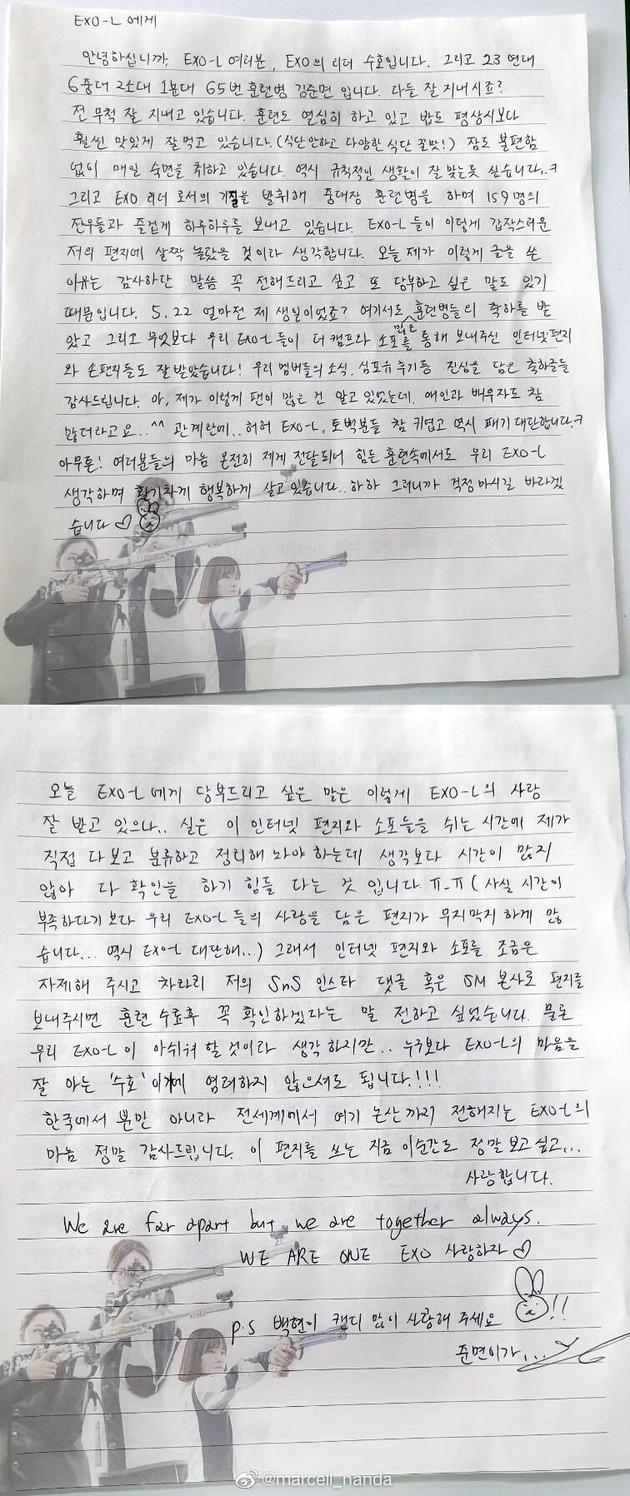 EXO-L 에게
안녕하십니까, EXO-L 여러분, EXO의 리더 수호입니다. 그리고 23연대
6중대 2소대 1분대 65번 훈련병 김준면 입니다. 다들 잘 지내시죠?
전 무척 잘 지내고 있습니다. 훈련도 열심히 하고 있고 밥도 평상시보다
훨씬 맛있게 잘먹고 있습니다. (식단안하고 다양한 식단 꿀맛!) 잠도 불편함
없이 매일 숙면을 취하고 있습니다. 역시 규칙적인 생활이 잘 맞는듯 싶습니다..ㅋ
그리고 EXO 리더 로서의 기질을 발휘해 중대장 훈련병을 하며 159명의
전우들과 즐겁게 하루하루를 보내고 있습니다. EXO-L 들이 이렇게 갑작스러운
저의 편지에 살짝 놀랐을 것이라 생각합니다. 오늘 제가 이렇게 글을 쓴
이유는 감사하단 말씀 꼭 전해드리고 싶고 또 당부하고 싶은 말도 있기
때문입니다. 5.22 얼마전 제 생일이었죠? 여기서도 훈련병들의 축하를 받
았고 그리고 무엇보다 우리 EXO-L들이 더 캠프와 소포를 통해 보내주신 많은 인터넷편지
와 손편지들도 잘 받았습니다! 우리 멤버들의 소식, 심포유 후기등 진심을 담은 축하글들
감사드립니다. 아, 제가 이렇게 팬이 많은 건 알고 있었는데, 애인과 배우자도 참
많더라고요..^^ 관계란에.. 허허 EXO-L, 토벅분들 참 귀엽고 역시 패기 대단합니다.ㅋ
아무튼! 여러분들의 마음 온전히 제게 전달되니 힘든 훈련속에서도 우리 EXO-L
생각하며 활기차게 행복하게 살고 있습니다.. 하하 그러니까 걱정 마시길 바라겠
습니다 ♡
오늘 EXO-L 에게 당부드리고 싶은 말은 이렇게 EXO-L의 사랑
잘 받고 있으나.. 실은 이 인터넷 편지와 소포들을 쉬는 시간에 제가
직접 다 보고 분류하고 정리해 놔야 하는데 생각보다 시간이 많지
않아 다 확인을 하기 힘들 다는 것 입니다 ㅠ_ㅠ (사실 시간이
부족하다기 보다 우리 EXO-L 들의 사랑을 담은 편지가 무지막지 하게 많
습니다... 역시 EXO-L 대단해..) 그래서 인터넷 편지와 소포를 조금은
자제해 주시고 차라리 저의 SnS 인스타 댓글 혹은 SM 본사로 편지를
보내주시면 훈련 수료후 꼭 확인하겠다는 말 전하고 싶었습니다. 물론
우리 EXO-L 이 아쉬워 할 것이라 생각 하지만.. 누구보다 EXO-L의 마음을
잘 아는 '수호' 이기에 염려하지 않으셔도 됩니다.!!!
한국에서 뿐만 아니라 전세계에서 여기 논산 까지 전해지는 EXO-L의
마음 정말 감사드립니다. 이 편지를 쓰는 지금 이순간도 정말 보고 싶고...
사랑합니다.
We are far apart but we are together always.
WE ARE ONE EXO 사랑하자 ♡
p.s 백현이 캔디 많이 사랑해 주세요 !!
준면이가...
@marcell_nanda